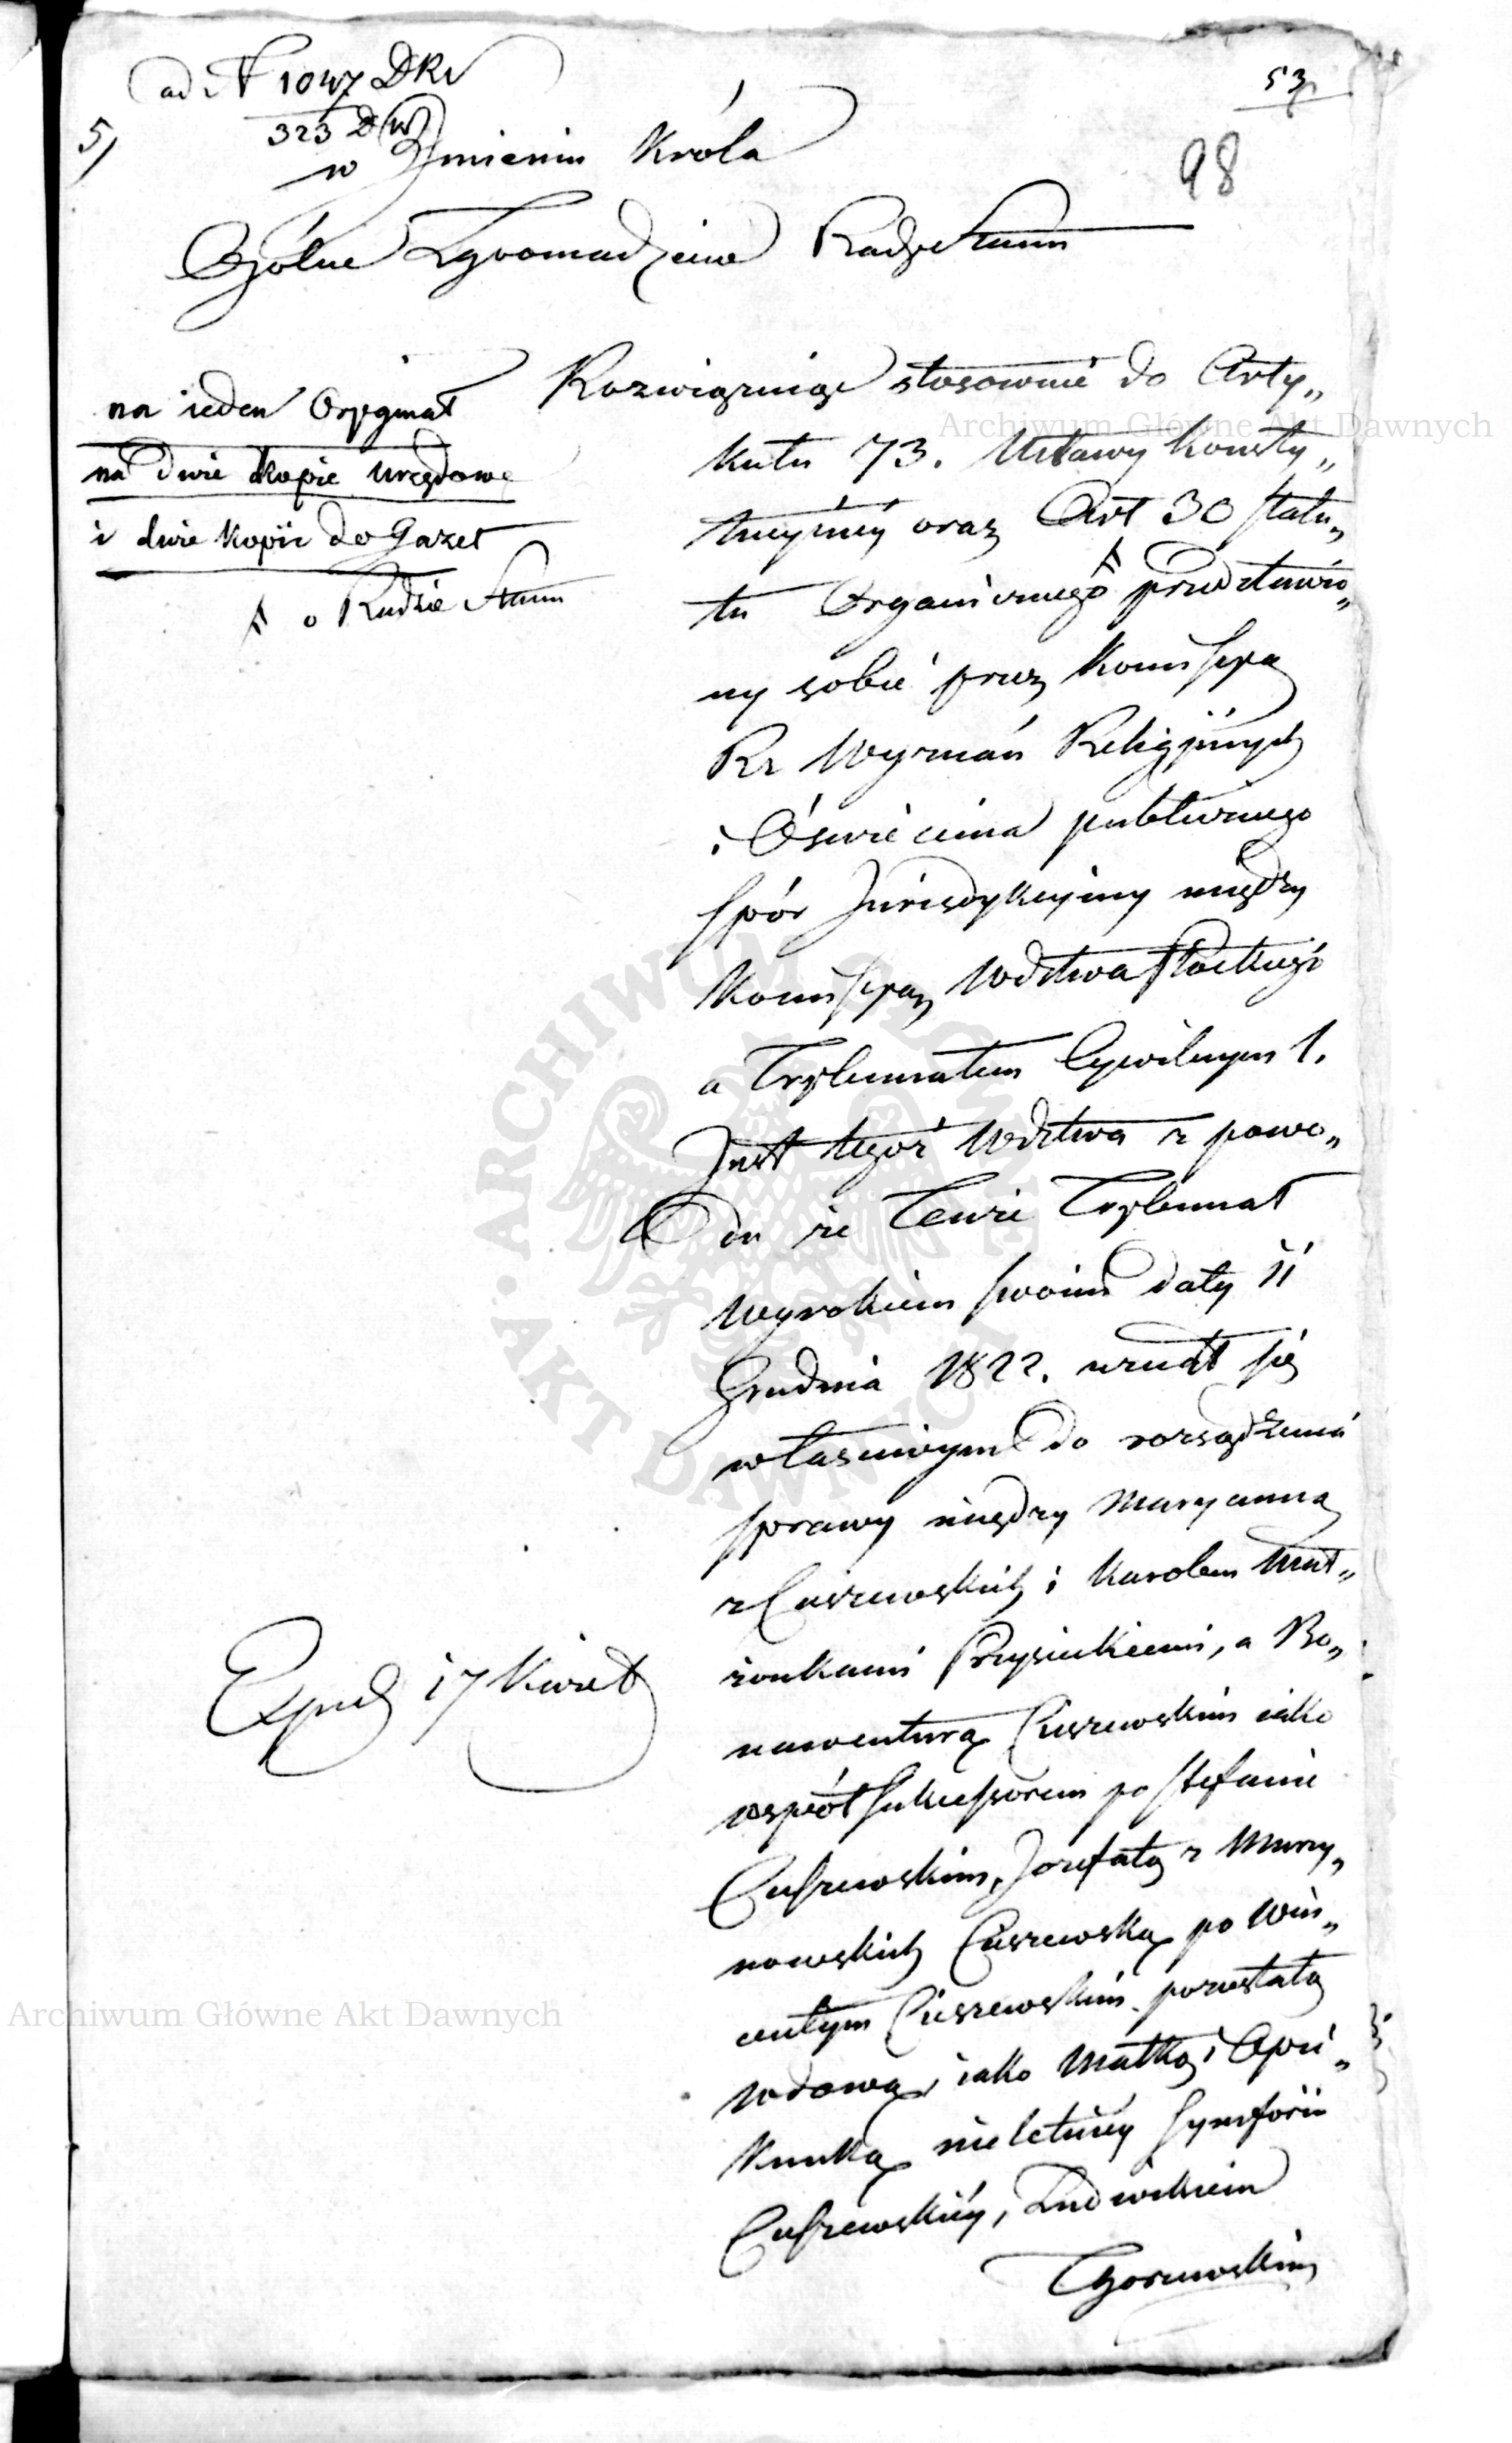 ad N 1047 DKr
323 D W
5)
53
98
w Imieniu Króla
Ogólne Zgromadzenie Rady Stanu
na ieden Oryginał
na dwie kopie urzędowe
i dwie kopii do Gazet
# o Radzie Stanu
Rozwiązuiąc stosownie do Arty„
kułu 73. Ustawy Konsty„
tucyinéy oraz Art 30 Statu„
tu Organicznego # przedstawio„
ny sobie przez Kommissyą
Rz Wyznań Religijnych
i Oświecenia publicznego
Spór Jurisdykcyiny między
Kommissyą Wdztwa Płockiego
a Trybunałem Cywilnym 1.
Inst tegoż Wdztwa z powo„
du że Tenże Trybunał
wyrokiem swoim daty 11
Grudnia 1822. uznał się
właściwym do rozsądzenia
sprawy między Maryanną
z Ciszewskich i Karolem Mał„
żonkami Przysieckiemi, a Bo„
nawenturą Ciszewskim iako
współ Sukcessorem po Stefanie
Ciszewskim, Jozefatą z Murzy„
nowskich Ciszewską po Win„
centym Ciszewskim pozostałą
wdową, iako Matką i Opie„
kunką nieletniéy Symforii
Ciszewskiéy, Ludwikiem
Zgorzewskim
Exped 17 Kwiet
Archiwum Główne Akt Dawnych
ARCHIWUM GŁÓWNE AKT DAWNYCH
Archiwum Główne Akt Dawnych